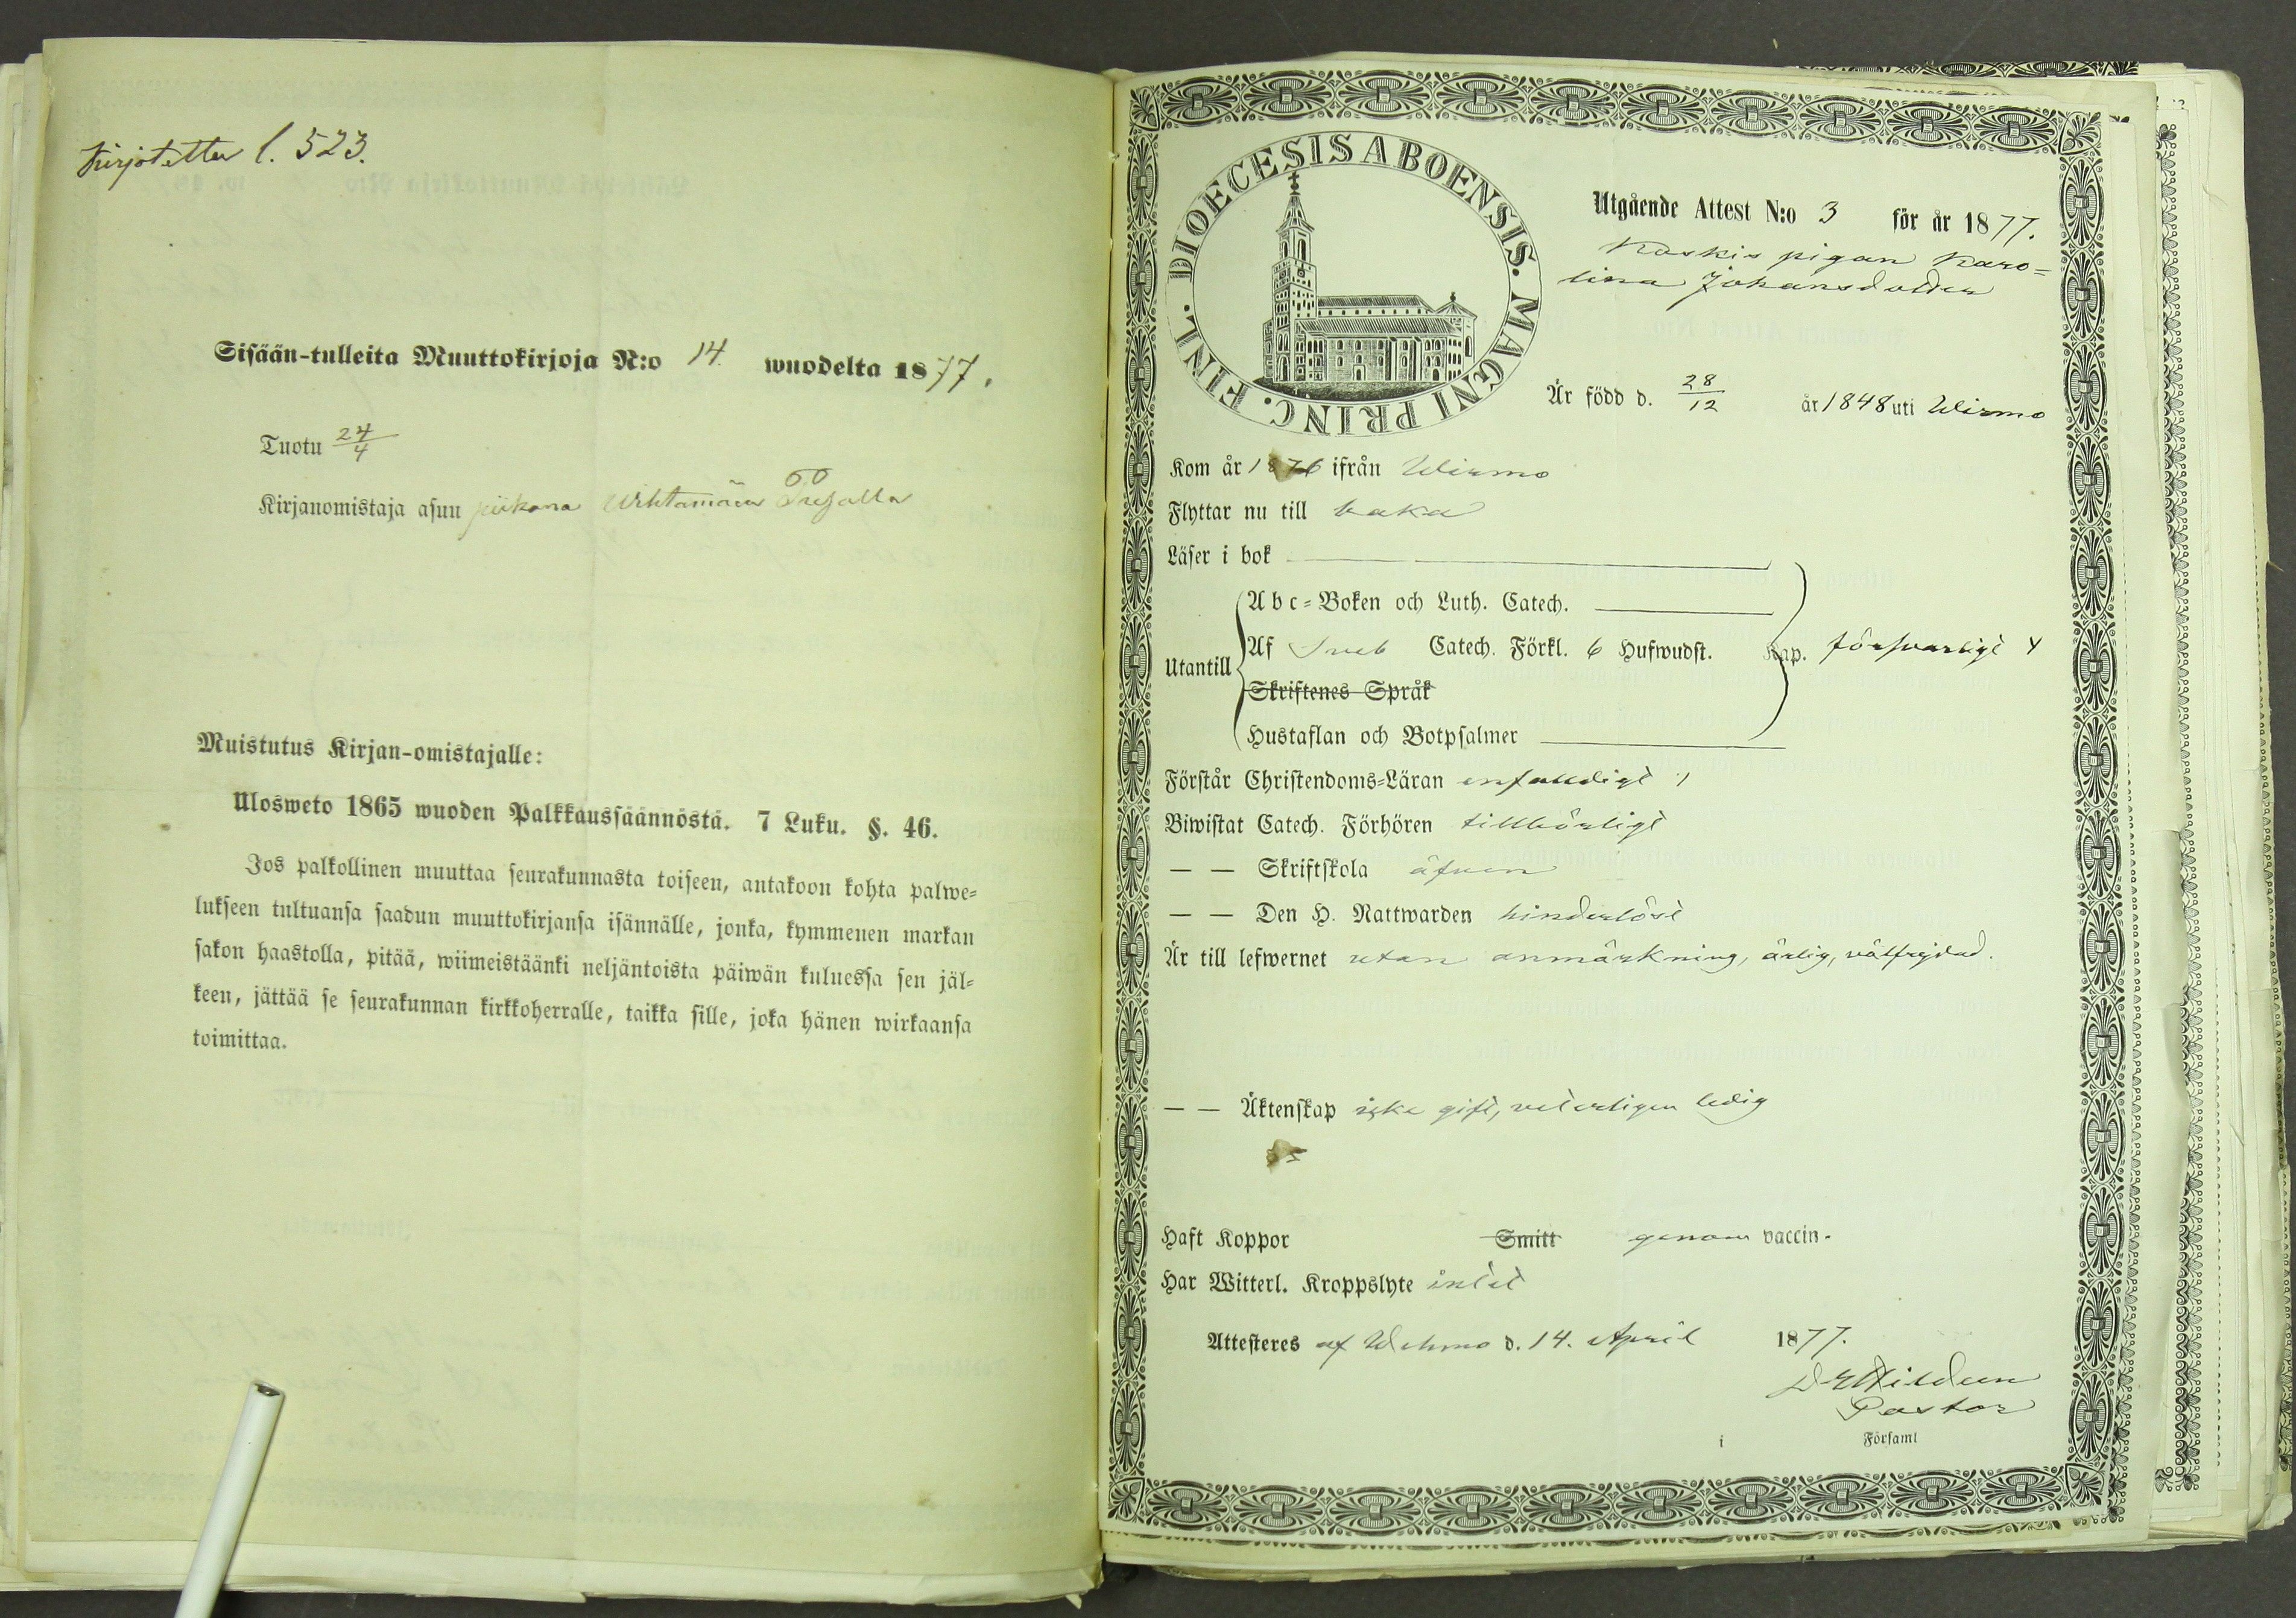 Kirjotettu l. 523.
Sisään-tulleita Muuttokirjoja N:o 14. wuodelta 1877.
Tuotu 24/4
Kirjanomistaja asuu piikana
Muistutus Kirjan-omistajalle:
Ulosweto 1865 wuoden Palkkaussäännöstä. 7 Luku. §. 46.
Jos palkollinen muuttaa seurakunnasta toiseen, antakoon kohta palwe=
lukseen tultuansa saadun muuttokirjansa isännälle, jonka, kymmenen markan
sakon haastolla, pitää, wiimeistäänki neljäntoista päiwän kuluessa sen jäl=
keen, jättää se seurakunnan kirkkoherralle, taikka sille, joka hänen wirkaansa
toimittaa.
DIOECESIS ABOENSIS. MAGNI PRINC. FINL.
Utgående Attest N:o 3 för år 1877.
Kaskis pigan Karo=
lina Johansdotter
Är född d. 28/12 år 1848 uti Wirmo
Kom år 1876 ifrån Wirmo
Flyttar nu till baka
Läser i bok
Utantill
Abc=Boken och Luth. Catech.
Af Sveb Catech. Förkl. 6 Hufwudst. Kap. försvarligt
Skriftenes Språk
Hustaflan och Botpsalmer
Förstår Christendoms=Läran enfaldigt
Biwistat Catech. Förhören tillbörligt
— — Skriftskola äfven
— — Den H. Nattwarden hinderlöst
Är till lefwernet utan anmärkning, ärlig, välfrejdad.
— — Äktenskap icke gift, veterligen ledig
Haft Koppor Smitt genom vaccin.
Har Witterl. Kroppslyte intet
Attesteres af Wehmo d. 14. April 1877.
Pastor
i Församl